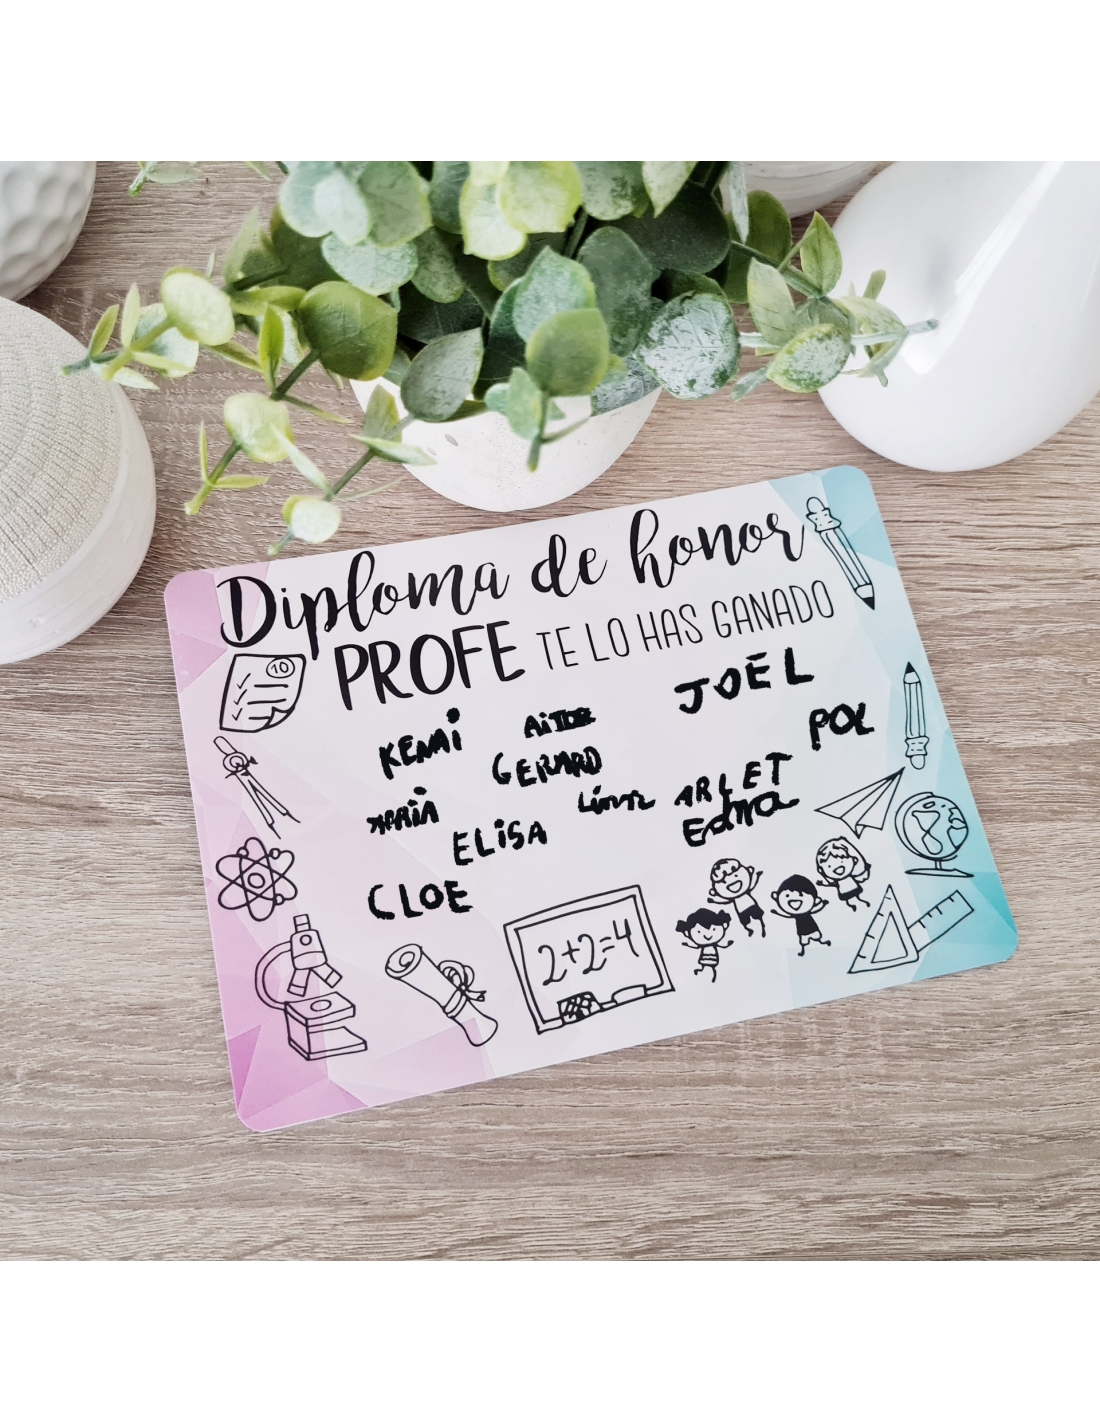 Diploma de honor
PROFE TE LO HAS GANADO
10
JOEL
KENAI
AiTOR
POL
GERARD
ARLET
MARiA
Edna
ELiSA
CLOE
2+2=4